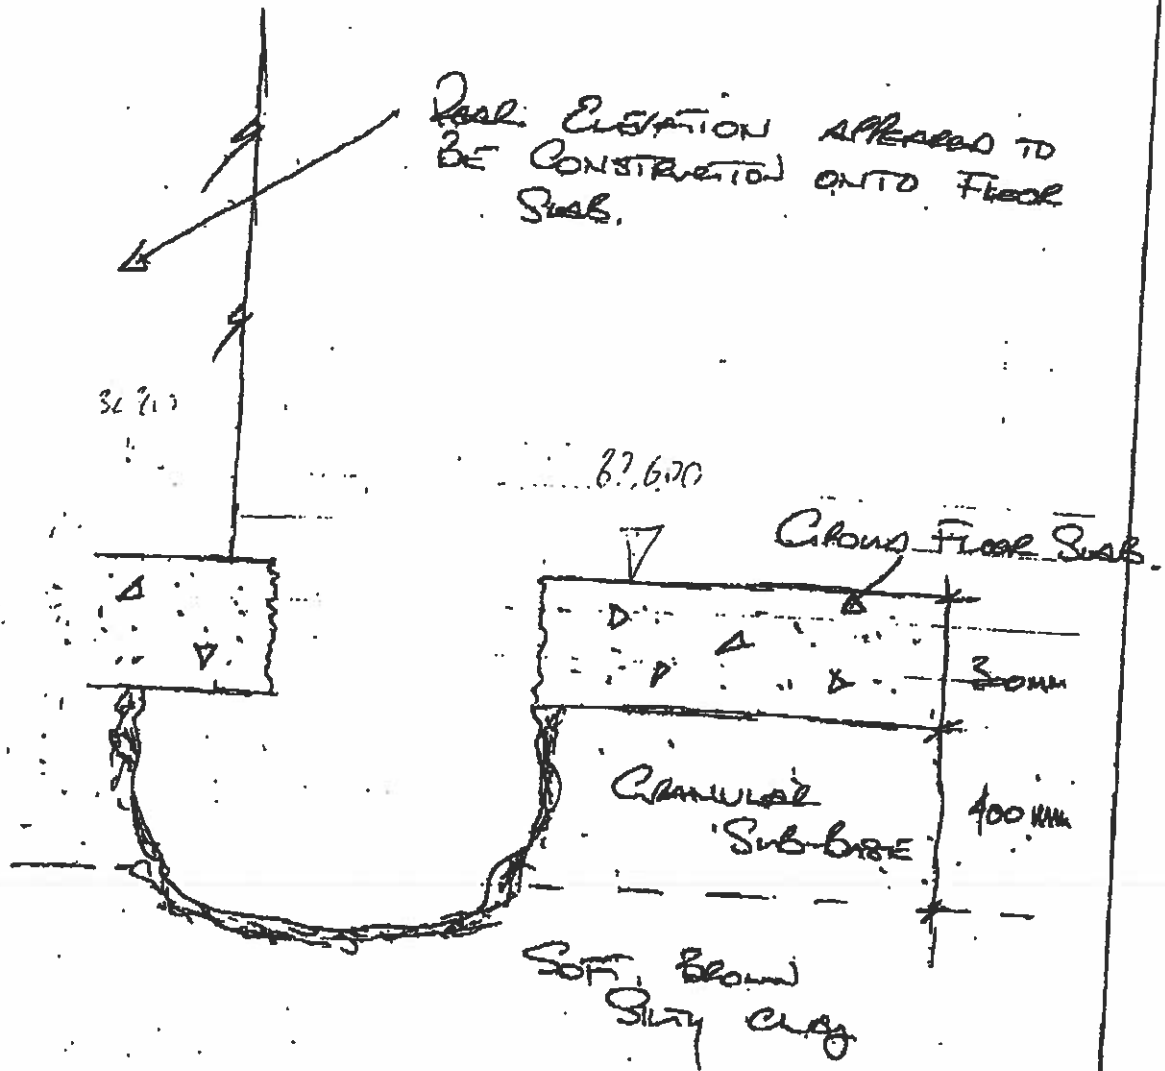 REAR ELEVATION APPEARED TO
BE CONSTRUCTION ONTO FLOOR
SLAB.
GROUND FLOOR SLAB.
GRANULAR
SUB-BASE
400mm
SOFT BROWN
SILTY CLAY